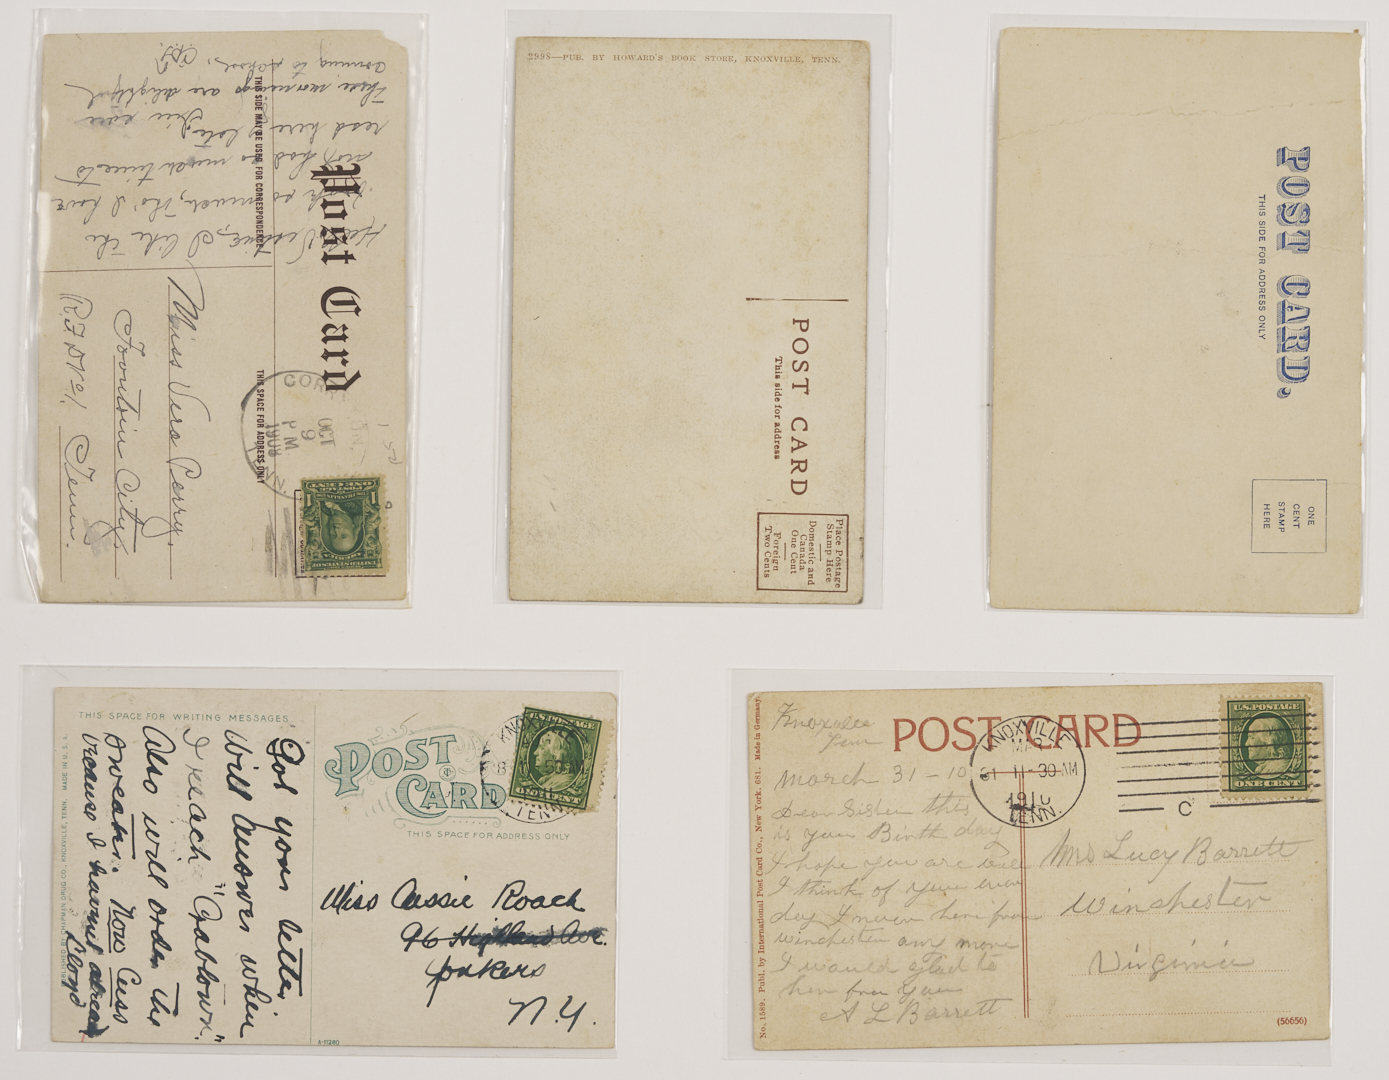 Post Card
THIS SIDE MAY BE USED FOR CORRESPONDENCE
THIS SPACE FOR ADDRESS ONLY
I like the
so much, tho' I have
not had so much time to
read here lately.
These mornings are delightful
coming to school.
Miss Vera Perry.
Fountain City,
R.F.D. No 1. Tenn.
OCT
9
P.M.
1908
TENN.
2998—PUB. BY HOWARD'S BOOK STORE, KNOXVILLE, TENN.
POST CARD
This side for address
Place Postage
Stamp Here
Domestic and
Canada
One Cent
Foreign
Two Cents
POST CARD.
THIS SIDE FOR ADDRESS ONLY
ONE
CENT
STAMP
HERE
THIS SPACE FOR WRITING MESSAGES
POST
CARD
THIS SPACE FOR ADDRESS ONLY
U.S. POSTAGE
ONE CENT
KNOXVILLE
TENN.
Got your letter
Will answer when
I reach "Gabtown."
Also will order the
sweater. Now Cuss
because I havent already
Lloyd
Miss Cassie Roach
96 Highland Ave.
Yonkers
N.Y.
MADE IN U.S.A.
A-11280
POST CARD
KNOXVILLE
MAR
31 11-30 AM
1910
TENN.
C
U.S. POSTAGE
ONE CENT
Knoxville
Tenn
March 31-10
Dear Sister this
is your Birth day
I hope you are well
I think of you every
day I never hear from
winchester any more
I would glad to
hear from you
A L Barrett
Mrs Lucy Barrett
Winchester
Virginia
No. 1589. Publ. by International Post Card Co., New York. 681. Made in Germany.
(56656)